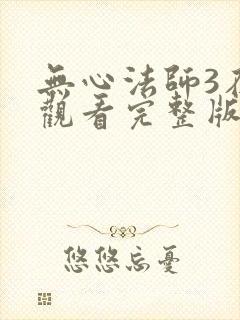 無心法師3
觀看完整版
悠悠忘憂